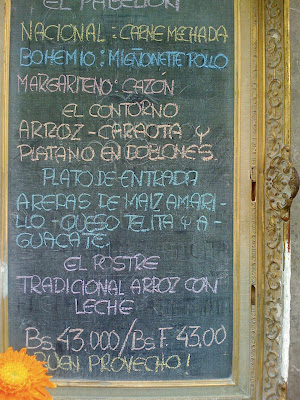 EL PABELLON
NACIONAL : CARNE MECHADA
BOHEMIO : MIGÑONETTE POLLO
MARGARITEÑO : CAZÓN
EL CONTORNO
ARROZ - CARAOTA Y
PLATANO EN DOBLONES.
PLATO DE ENTRADA
AREPAS DE MAIZ AMARI-
LLO - QUESO TELITA Y A-
GUACATE.
EL POSTRE
TRADICIONAL ARROZ CON
LECHE
Bs. 43.000 / Bs F. 43.00
BUEN PROVECHO !